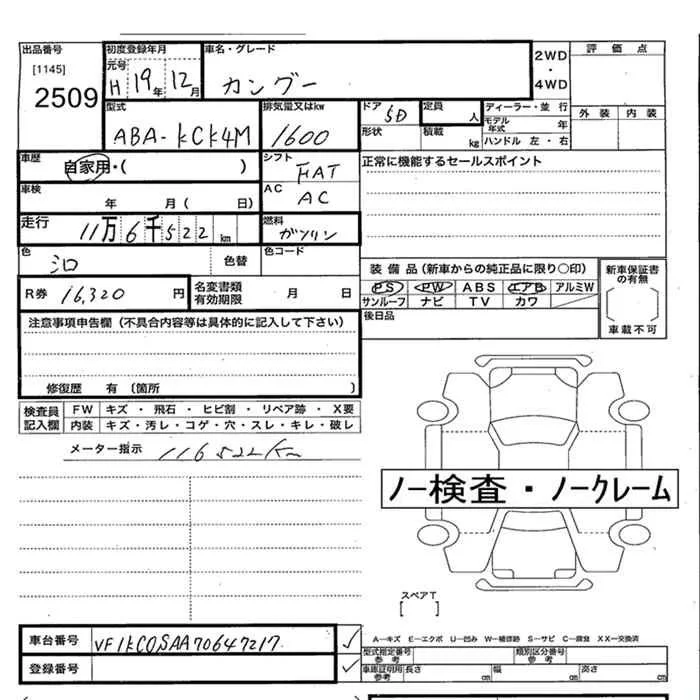 出品番号
[1145]
2509
初度登録年月
元号
H 19年 12月
車名・グレード
カングー
2WD
・
4WD
評価点
外装 内装
型式
ABA-KCK4M
排気量又はkw
1600
ドア 5D
形状
定員 人
積載 kg
ディーラー・並行
モデル年式 年
ハンドル 左・右
車歴
自家用・( )
シフト
FAT
正常に機能するセールスポイント
車検
年 月( 日)
AC
AC
走行
11万6千522km
燃料
ガソリン
色
色替
色コード
R券 16,320 円
名変書類
有効期限
月 日
装備品(新車からの純正品に限り○印)
PS PW ABS エアB アルミW
サンルーフ ナビ TV カワ
後日品
新車保証書
の有無
車載不可
注意事項申告欄(不具合内容等は具体的に記入して下さい)
修復歴 有〔箇所 〕
検査員
記入欄
FW キズ・飛石・ヒビ割・リペア跡・X要
内装 キズ・汚レ・コゲ・穴・スレ・キレ・破レ
メーター指示 116522km
ノー検査・ノークレーム
スペアT
[ ]
車台番号 VF1KC0SAA70647217
登録番号
A―キズ E―エクボ U―凹み W―補修跡 S―サビ C―腐食 XX―交換済
型式指定番号
参考
類別区分番号
参考
車庫証明用
参考
長さ cm 幅 cm 高さ cm